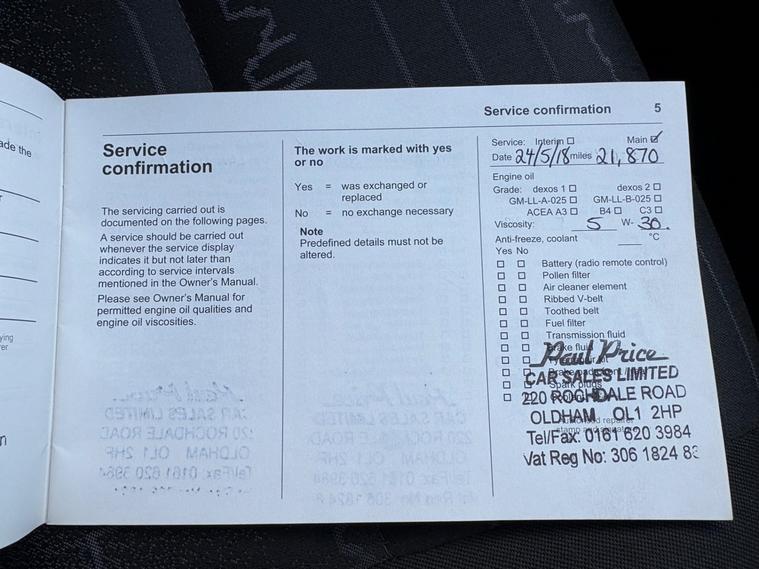 ade the
ying
Service confirmation 5
Service
confirmation
The servicing carried out is
documented on the following pages.
A service should be carried out
whenever the service display
indicates it but not later than
according to service intervals
mentioned in the Owner's Manual.
Please see Owner's Manual for
permitted engine oil qualities and
engine oil viscosities.
The work is marked with yes
or no
Yes = was exchanged or
replaced
No = no exchange necessary
Note
Predefined details must not be
altered.
Service: Interim ☐ Main ☑
Date 24/5/18 miles 21,870
Engine oil
Grade: dexos 1 ☐ dexos 2 ☐
GM-LL-A-025 ☐ GM-LL-B-025 ☐
ACEA A3 ☐ B4 ☐ C3 ☐
Viscosity: 5 W- 30.
Anti-freeze, coolant °C
Yes No
☐ ☐ Battery (radio remote control)
☐ ☐ Pollen filter
☐ ☐ Air cleaner element
☐ ☐ Ribbed V-belt
☐ ☐ Toothed belt
☐ ☐ Fuel filter
☐ ☐ Transmission fluid
☐ ☐ Brake fluid
Paul Price
CAR SALES LIMITED
220 ROCHDALE ROAD
OLDHAM OL1 2HP
Tel/Fax: 0161 620 3984
Vat Reg No: 306 1824 83